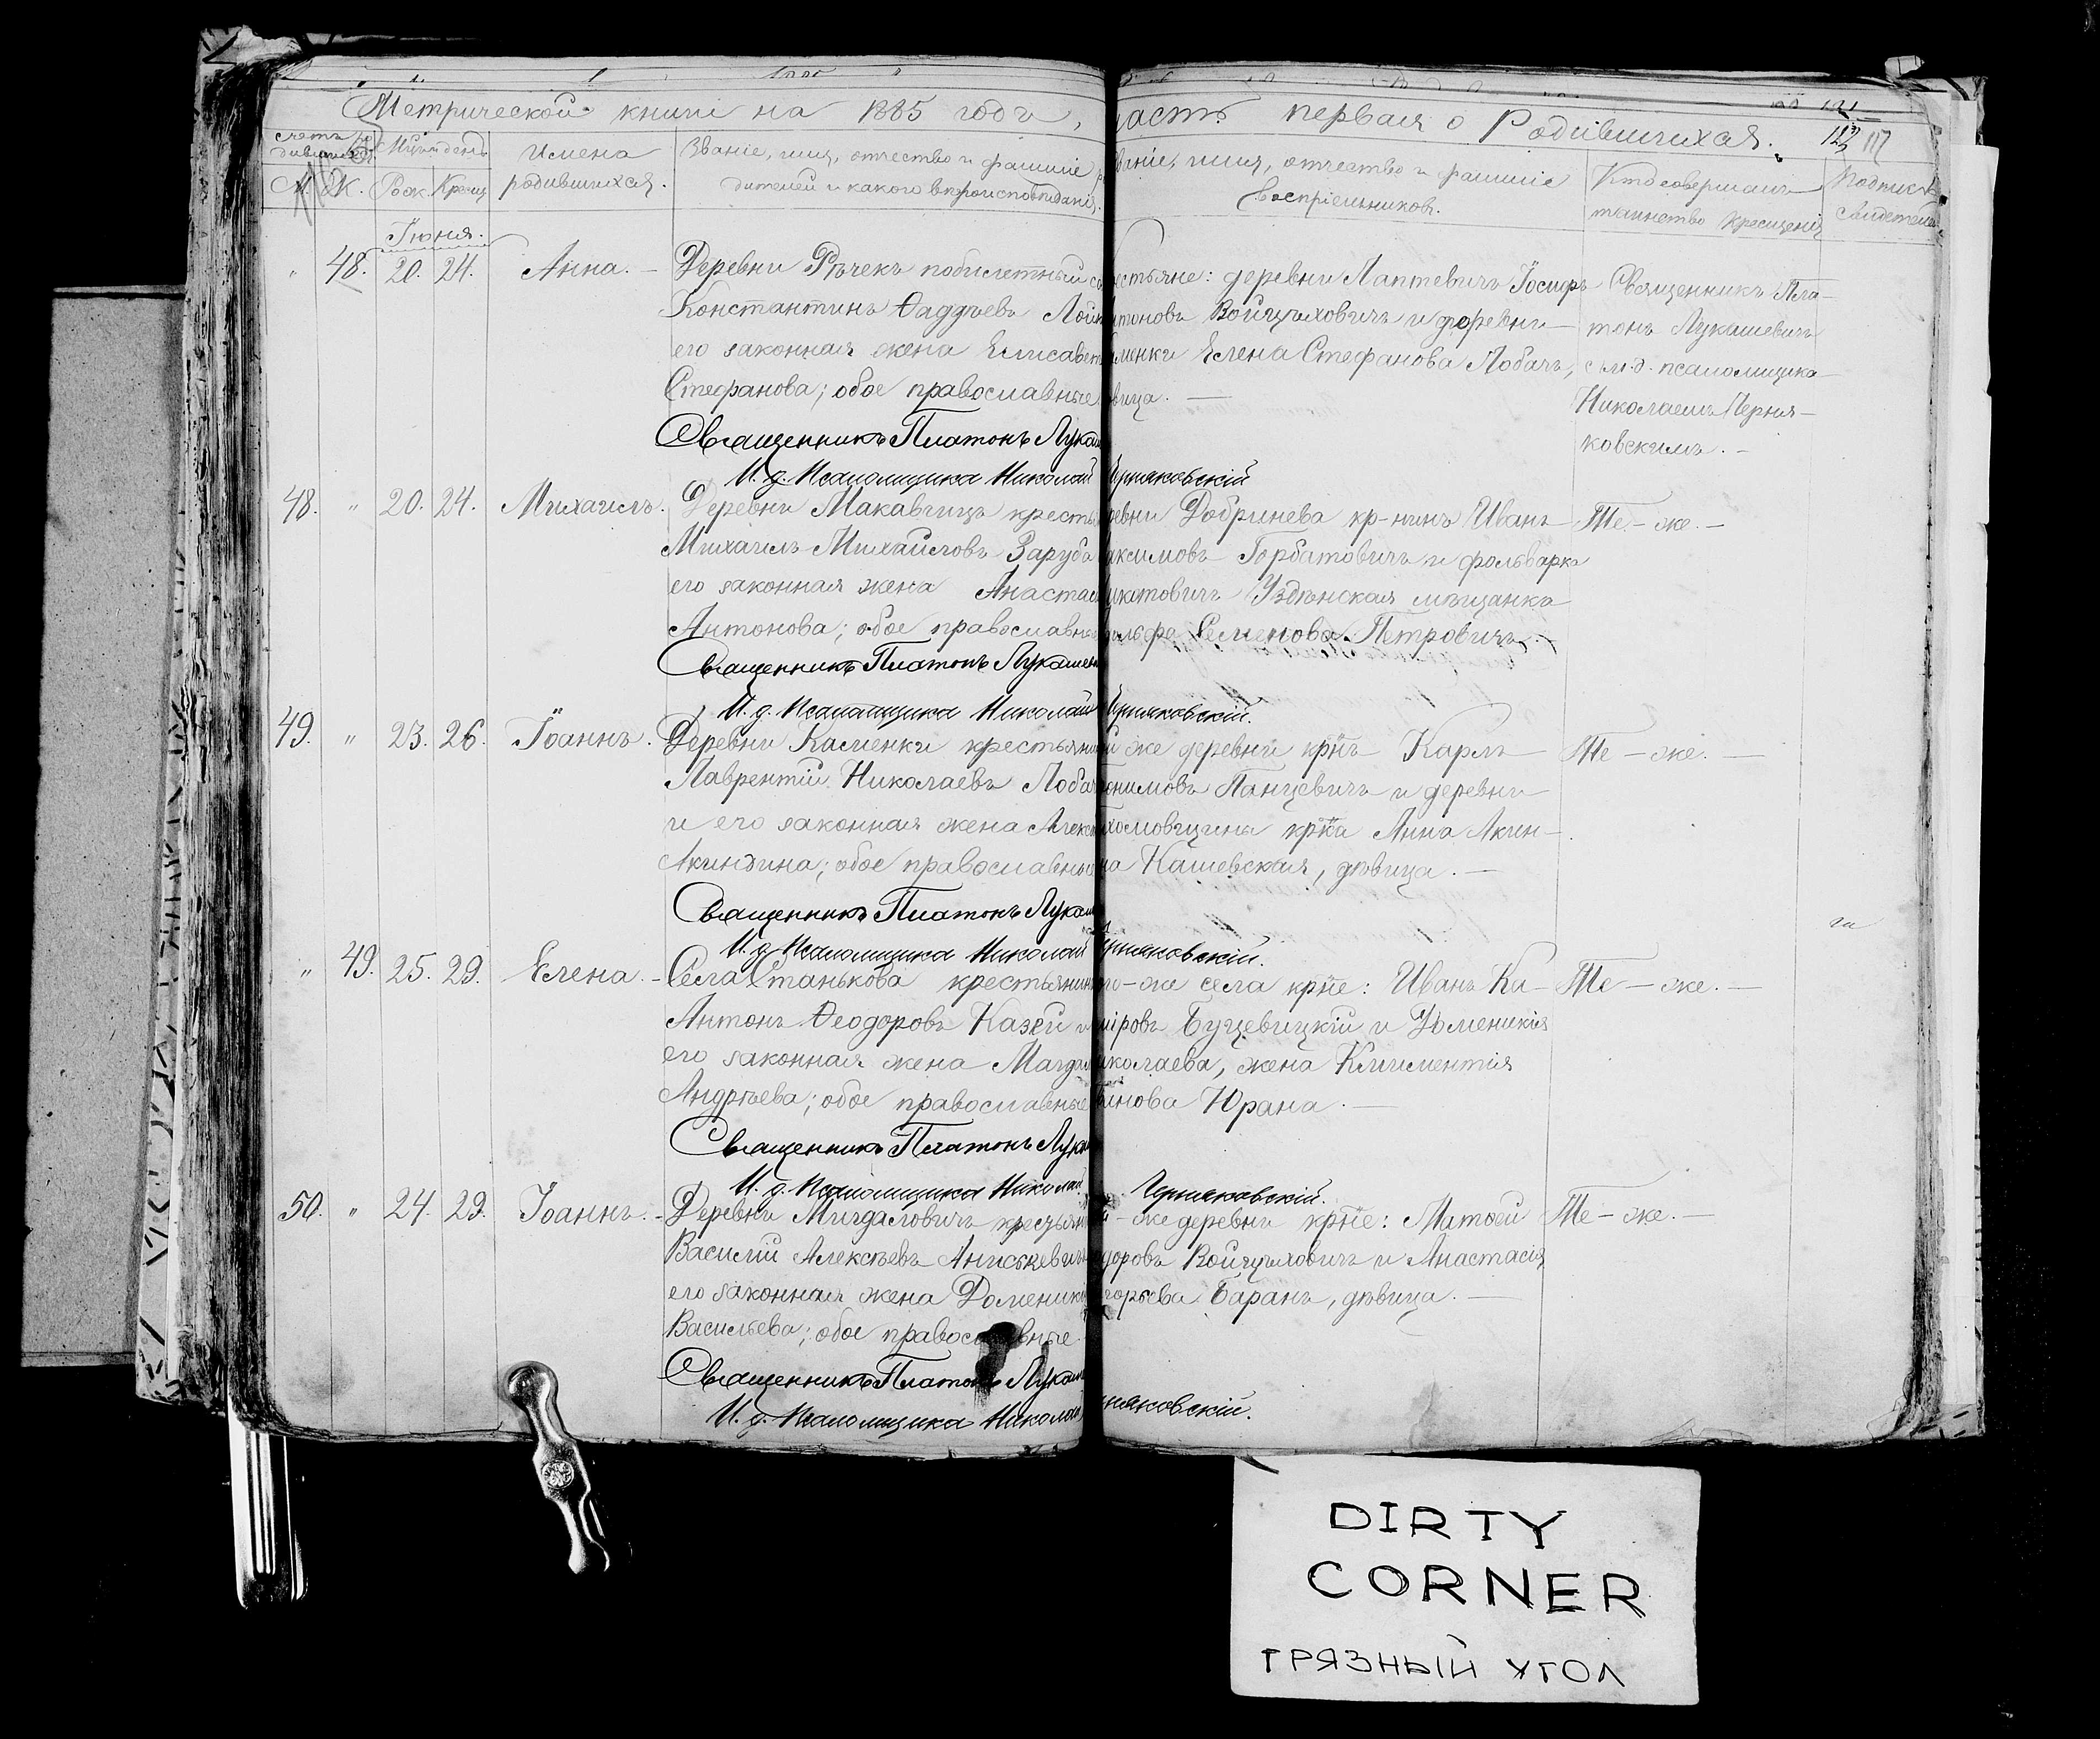 Метрической книги на 1885 годъ,
часть первая о Родившихся.
Счетъ родившихся
Мѣсяцъ и день
Имена
родившихся.
Званіе, имя, отчество и фамиліе
дителей и какого вѣроисповѣданія.
М. Ж. Рож. Крещ.
Званіе, имя, отчество и фамиліе
воспріемниковъ.
Кто совершалъ
таинство крещенія
Подпись
свидетел
Іюня.
" 48. 20. 24. Анна. –
Деревни Рѣчекъ побилетный со
Константинъ Ѳаддѣевъ Лой
его законная жена Елисавет
Стефанова; обое православные
Священникъ Платонъ Лукаш
И. д. Псаломщика Николай Черняковскій
естьяне: деревни Лаптевичъ Іосифъ
тоновъ Войцѣховичъ и деревни
менки Елена Стефанова Лобачъ,
вица. –
Священникъ Пла-
тонъ Лукашевичъ
с и.д. псаломщика
Николаемъ Черня-
ковскимъ. –
48. " 20. 24. Михаилъ.
Деревни Макавчицъ кресть
Михаилъ Михайловъ Заруба
его законная жена Анастас
Антонова; обое православны
Священникъ Платонъ Лукашев
И. д. Псаломщика Николай Черняковскій.
ревни Добринева кр-нинъ Иванъ
аксимовъ Горбатовичъ и фольварка
икитовичъ Уздѣнская мѣщанка
ольфа Семенова Петровичъ.
Те-же. –
49. " 23. 26. Іоаннъ.
Деревни Каменки крестьянин
Лаврентій Николаевъ Лобач
и его законная жена Алекс
Акиндина; обое православные
Священникъ Платонъ Лукаш
И. д. Псаломщика Николай Черняковскій.
й же деревни кр-нъ Карлъ
онимовъ Панцевичъ и деревни
хомовщины кр-ка Анна Акин-
на Кашевская, дѣвица. –
Те-же. –
" 49. 25. 29. Елена. –
Села Станькова крестьянин
Антонъ Ѳеодоровъ Казей и
его законная жена Магдал
Андрѣева; обое православные
Священникъ Платонъ Лука
И. д. Псаломщика Николай Черняковскій.
го-же села кр-не: Иванъ Ка-
міровъ Буцевицкій и Доменикія
иколаева, жена Климентія
инова Юрана. –
Те-же. –
50. " 24. 29. Іоаннъ. –
Деревни Мигдаловичъ крестьян
Василій Алексѣевъ Аниськевичъ
его законная жена Доменик
Васильева; обое православные
Священникъ Платонъ Лукаш
И. д. Псаломщика Николай Черняковскій.
й-же деревни кр-не: Матѳей
доровъ Войцѣховичъ и Анастасія
горьева Баранъ, дѣвица. –
Те-же. –
DIRTY
CORNER
ГРЯЗНЫЙ УГОЛ